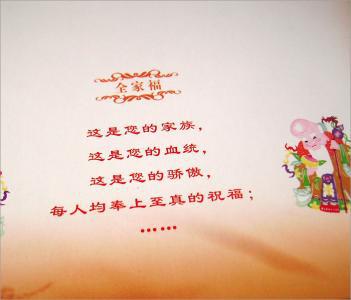 全家福
这是您的家族，
这是您的血统，
这是您的骄傲，
每人均奉上至真的祝福；
……